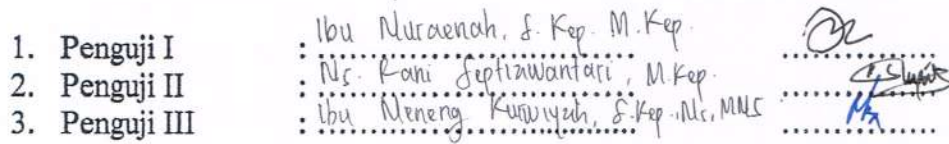 1. Penguji I : Ibu Nuraenah, S. Kep. M. Kep.
2. Penguji II : Ns. Rani Septiawantari, M.Kep.
3. Penguji III : Ibu Neneng Kurwiyah, S.Kep., Ns, MNS